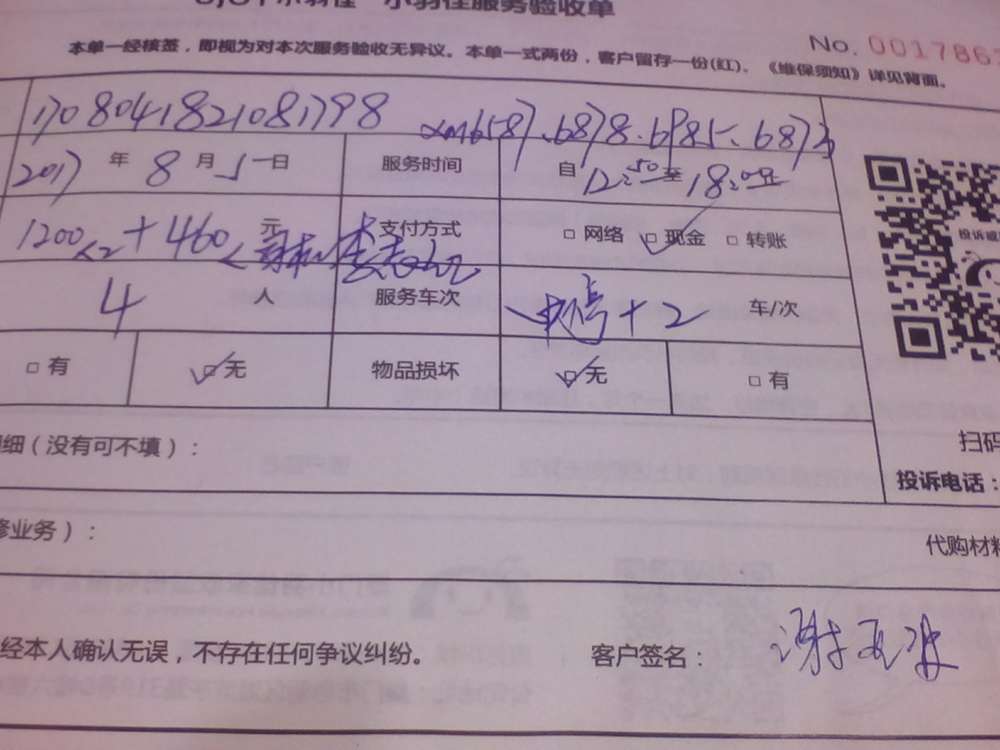 小羽佳服务验收单
本单一经核签，即视为对本次服务验收无异议。本单一式两份，客户留存一份(红)、《维保须知》详见背面。
No. 001786
1708041821081798 xm6587.6878.6985.6873
2017年8月5日 服务时间 自12:50至18:05
1200 +460 元 支付方式 □网络 ☑现金 □转账
4人 服务车次 +2 车/次
□有 ☑无 物品损坏 ☑无 □有
细（没有可不填）：
扫码
投诉电话：
业务）：
代购材料
经本人确认无误，不存在任何争议纠纷。 客户签名：谢